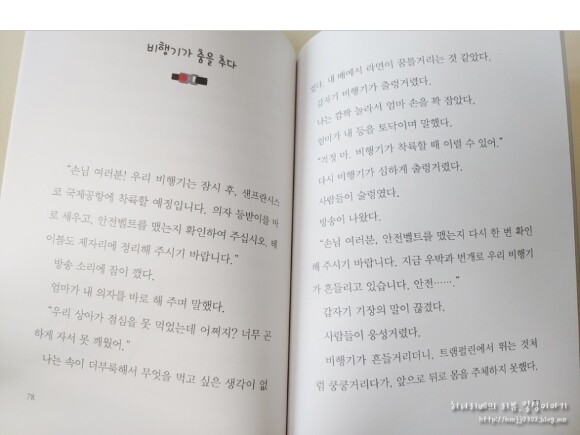 비행기가 춤을 추다
"손님 여러분! 우리 비행기는 잠시 후, 샌프란시스
코 국제공항에 착륙할 예정입니다. 의자 등받이를 바
로 세우고, 안전벨트를 맸는지 확인하여 주십시오. 테
이블도 제자리에 정리해 주시기 바랍니다."
방송 소리에 잠이 깼다.
엄마가 내 의자를 바로 해 주며 말했다.
"우리 상아가 점심을 못 먹었는데 어쩌지? 너무 곤
하게 자서 못 깨웠어."
나는 속이 더부룩해서 무엇을 먹고 싶은 생각이 없
78
었다. 내 배에서 라면이 꿈틀거리는 것 같았다.
갑자기 비행기가 출렁거렸다.
나는 깜짝 놀라서 엄마 손을 꽉 잡았다.
엄마가 내 등을 토닥이며 말했다.
"걱정 마. 비행기가 착륙할 때 이럴 수 있어."
다시 비행기가 심하게 출렁거렸다.
사람들이 술렁였다.
방송이 나왔다.
"손님 여러분, 안전벨트를 맸는지 다시 한 번 확인
해 주시기 바랍니다. 지금 우박과 번개로 우리 비행기
가 흔들리고 있습니다. 안전……."
갑자기 기장의 말이 끊겼다.
사람들이 웅성거렸다.
비행기가 흔들거리더니, 트램펄린에서 뛰는 것처
럼 쿵쿵거리다가, 앞으로 뒤로 몸을 주체하지 못했다.
http://hmjj2702.blog.me